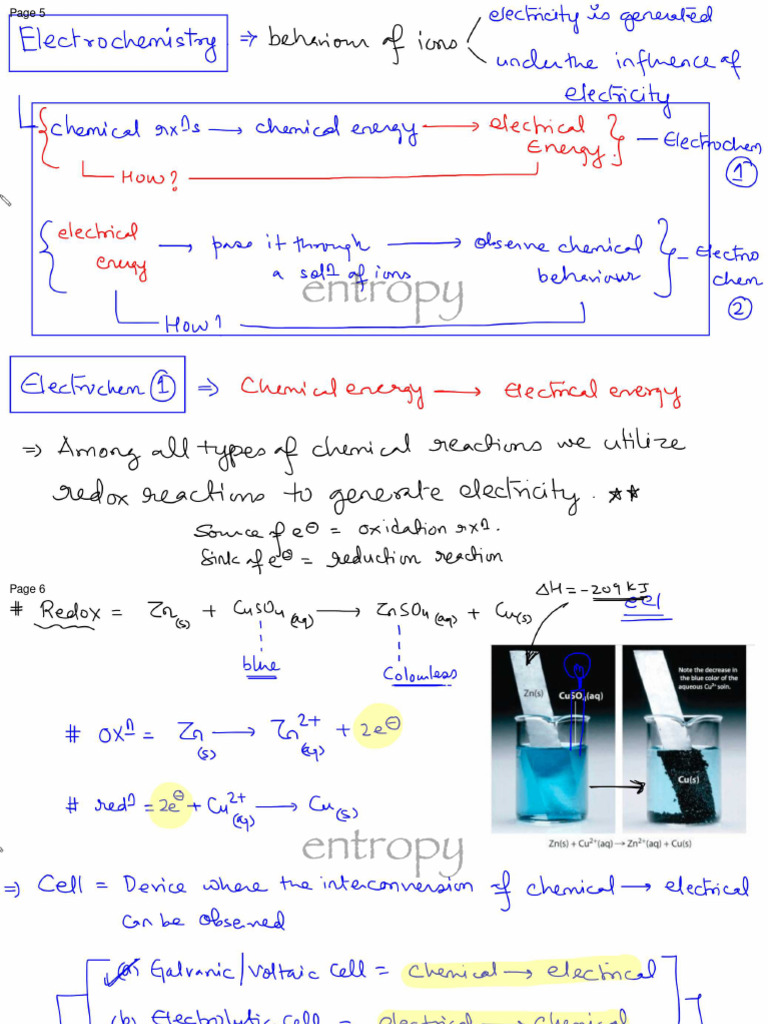 Page 5
Electrochemistry ⇒ behaviour of ions
electricity is generated
under the influence of
electricity
chemical rxⁿs → chemical energy → electrical
Energy. – Electrochem
①
How?
electrical
energy → pass it through → observe chemical – Electro
a solⁿ of ions behaviour chem
②
entropy
How?
Electrochem ① ⇒ Chemical energy → Electrical energy
⇒ Among all types of chemical reactions we utilize
redox reactions to generate electricity. **
Source of e⊖ = oxidation rxⁿ.
Sink of e⊖ = reduction reaction
Page 6
ΔH = -209 KJ
# Redox = Zn(s) + CuSO₄(aq) → ZnSO₄(aq) + Cu(s)
blue
Colourless
Zn(s)
CuSO₄(aq)
Note the decrease in
the blue color of the
aqueous Cu²⁺ soln.
Cu(s)
# oxⁿ = Zn(s) → Zn²⁺(aq) + 2e⊖
# redⁿ = 2e⊖ + Cu²⁺(aq) → Cu(s)
Zn(s) + Cu²⁺(aq) → Zn²⁺(aq) + Cu(s)
entropy
⇒ Cell = Device where the interconversion of chemical → electrical
can be observed
(a) Galvanic/Voltaic cell = chemical → electrical
(b) Electrolytic cell = electrical → chemical